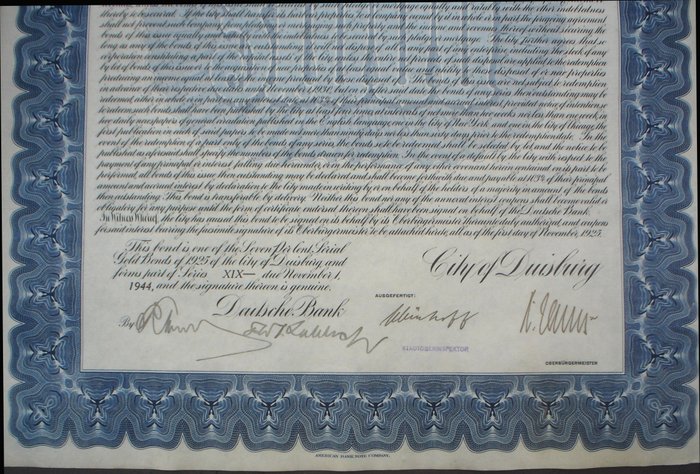 thereby to be secured. If the city shall transfer its
as any of the bonds of this issue are outstanding, it will not dispose of all or any part of any enterprise, including the stock of any
corporation constituting a part of the capital assets of the City, unless the entire net proceeds of such disposal are applied to the redemption
by lot of bonds of this issue or to the purchase or improvement of properties of at least equal value and utility to those disposed of or of new properties
producing an income not less than the income produced by those disposed of. The bonds of this issue are not subject to redemption
in advance of their respective due dates until November 1, 1930, but on or after said date the bonds of any series then outstanding may be
redeemed, either in whole or in part, on any interest date, at 103% of their principal amount and accrued interest, provided notice of intention so
to redeem said bonds shall have been published by the City at least four times at intervals of not more than two weeks nor less than one week, in
two daily newspapers of general circulation published in the English language in the City of New York, and one in the City of Chicago, the
first publication in each of said papers to be made not more than ninety days nor less than sixty days prior to the redemption date. In the
event of the redemption of a part only of the bonds of any series, the bonds so to be redeemed shall be selected by lot and the notice to be
published as aforesaid shall specify the numbers of the bonds drawn for redemption. In the event of a default by the City with respect to the
payment of any principal or interest falling due hereunder, or in the performance of any other covenant herein contained on its part to be
performed, all bonds of this issue then outstanding may be declared and shall become forthwith due and payable at 103% of their principal
amount and accrued interest by declaration to the City made in writing by or on behalf of the holders of a majority in amount of the bonds
then outstanding. This bond is transferable by delivery. Neither this bond nor any of the annexed interest coupons shall become valid or
obligatory for any purpose until the form of certificate endorsed thereon shall have been signed on behalf of the Deutsche Bank.
In Witness Whereof, the City has caused this bond to be signed on its behalf by its Oberbürgermeister thereunto duly authorized, and coupons
for said interest bearing the facsimile signature of its Oberbürgermeister to be attached hereto, all as of the first day of November, 1925.
This bond is one of the Seven Per Cent. Serial
Gold Bonds of 1925 of the City of Duisburg and
forms part of Series XIX— due November 1,
1944, and the signature thereon is genuine.
Deutsche Bank
By
City of Duisburg
AUSGEFERTIGT:
STADTOBERINSPEKTOR
OBERBÜRGERMEISTER
AMERICAN BANK NOTE COMPANY.